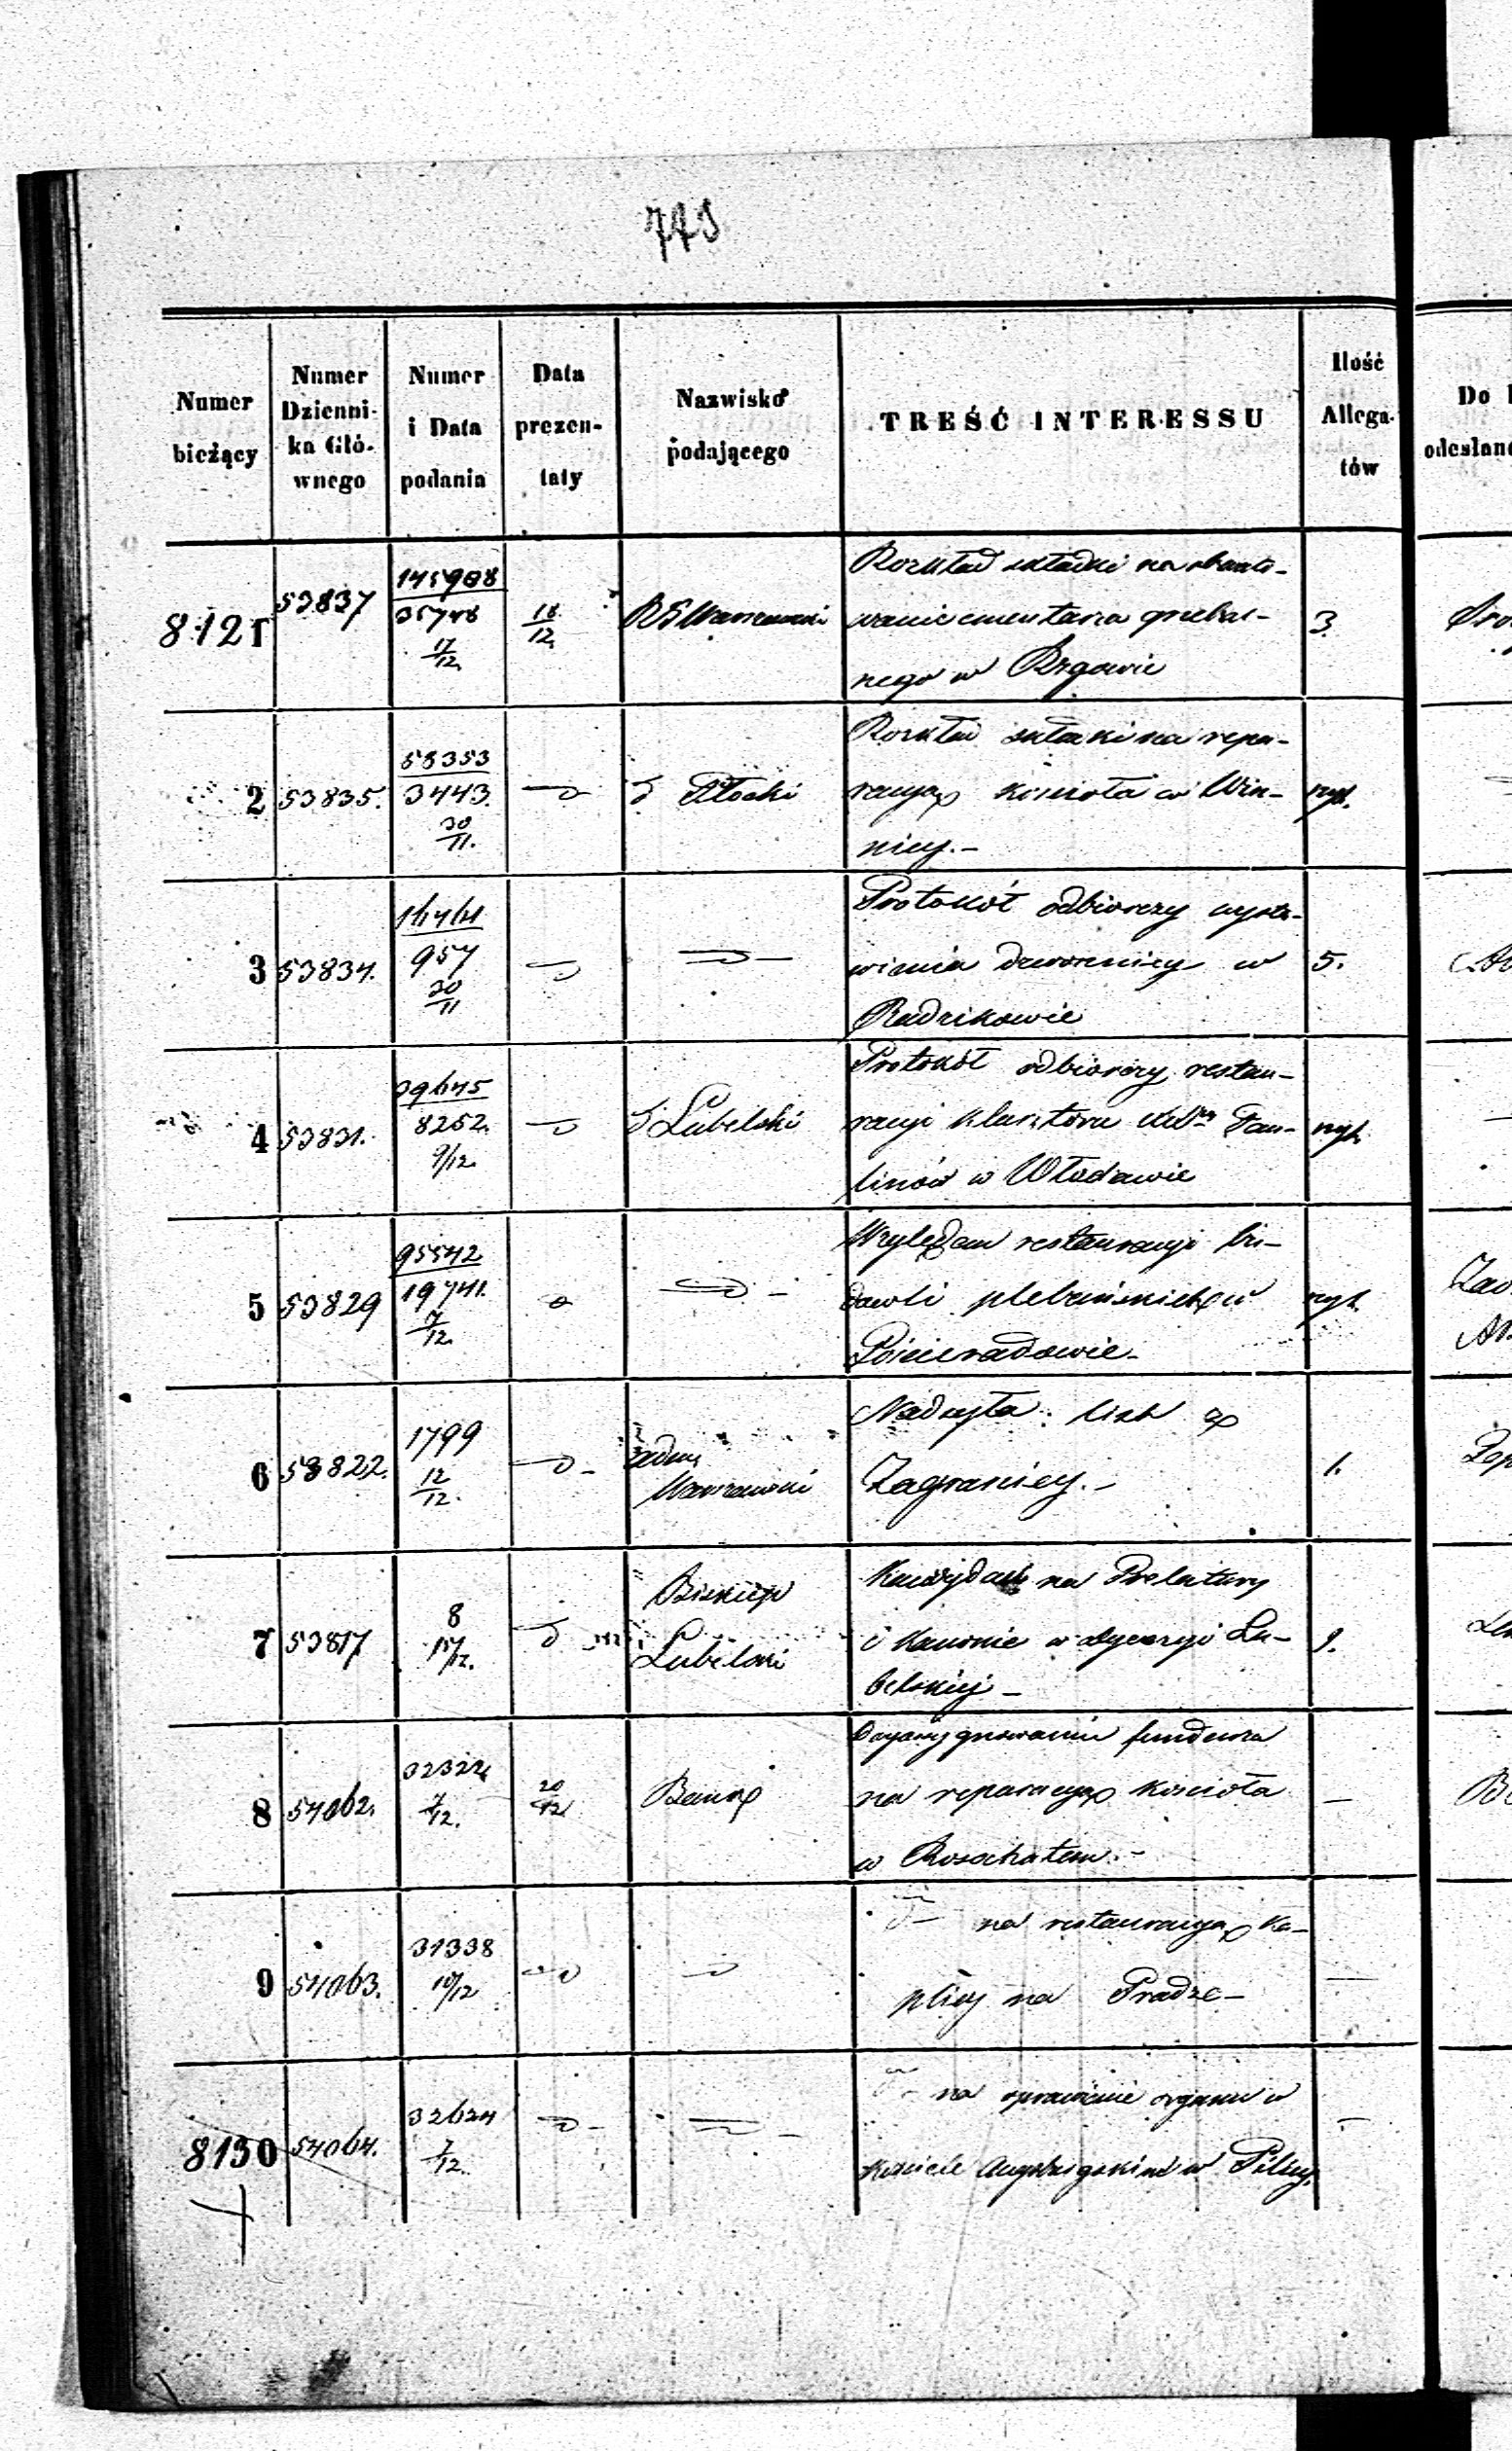 773
Numer bieżący
Numer Dzienni- ka Głó- wnego
Numer i Data podania
Data prezen- taty
Nazwisko podającego
TREŚĆ INTERESSU
Ilość Allega- tów
Do
odesłano
8121 53837 145988 35748 17/12 18/12 RG Warszawski 3.
Rozkład składki na obmuro-
wanie cmentarza grzebal-
nego w Rzgowie
2 53835. 58353 3443. 30/11. d Płocki
Rozkład składki na repa-
racyą kościoła w Win-
nicy.-
3 53834. 957 30/11 5.
Protokół odbiorczy wysta-
wienia dzwonnicy w
Radzikowie
4 53831. 39645 8252. 9/12. d Lubelski
Protokół odbiorczy restau-
racyi klasztoru Pau-
linów w Włodawie
5 53829 95542 19741. 7/12.
Względem restauracyi bu-
dowli plebańskich w
Pościeradowie-
6 53822. 1799 12/12. Warszawski 1.
Nadsyła list z
Zagranicy.-
7 53817 8 15/12. Biskup Lubelski 1.
Kandydaci na Prelatury
i Kanonie w dyecezyi Lu-
belskiej-
8 54062. 32322 7/12. 20/12 Bank -
Do asygnowania fundusza
na reparacyą kościoła
w Rosochatem.-
9 54063. 31338 10/12 -
d- na restauracyą Ka-
plicy na Pradze-
8130 54064. 32624 7/12. -
d- na sprawienie organu w
kościele Augustyańskim w Pilicy.